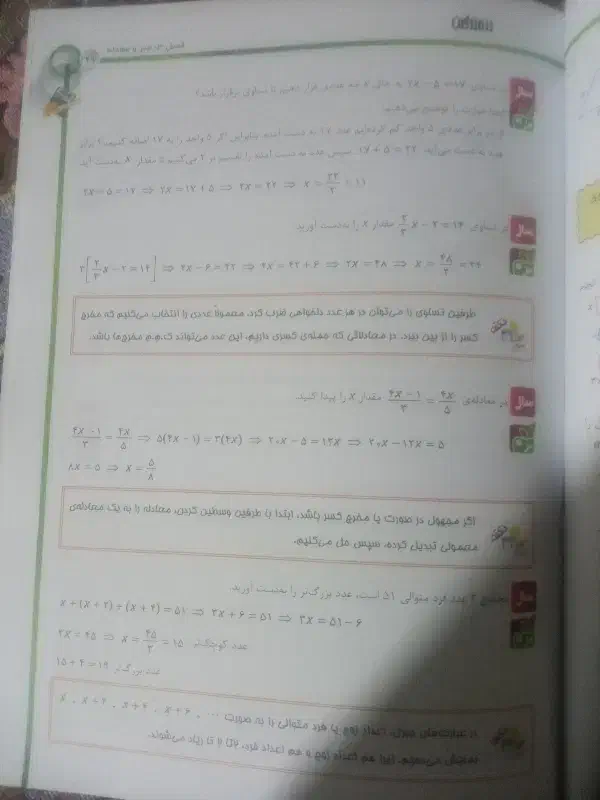 ریاضی
فصل ۳: جبر و معادله
سؤال در تساوی ۲x − ۵ = ۱۷ به جای x چه عددی قرار دهیم تا تساوی برقرار باشد؟
ابتدا عبارت را توضیح می‌دهیم.
از دو برابر عددی ۵ واحد کم کرده‌ایم عدد ۱۷ به دست آمده. بنابراین اگر ۵ واحد را به ۱۷ اضافه کنیم ۲ برابر
عدد به دست می‌آید. ۱۷ + ۵ = ۲۲ سپس عدد به دست آمده را تقسیم بر ۲ می‌کنیم تا مقدار x به‌دست آید.
۲x − ۵ = ۱۷ ⇒ ۲x = ۱۷ + ۵ ⇒ ۲x = ۲۲ ⇒ x = ۲۲/۲ = ۱۱
سؤال در تساوی ۲/۳ x − ۲ = ۱۴ مقدار x را به‌دست آورید.
۳[۲/۳ x − ۲ = ۱۴] ⇒ ۲x − ۶ = ۴۲ ⇒ ۲x = ۴۲ + ۶ ⇒ ۲x = ۴۸ ⇒ x = ۴۸/۲ = ۲۴
نکته طرفین تساوی را می‌توان در هر عدد دلخواهی ضرب کرد. معمولاً عددی را انتخاب می‌کنیم که مخرج
کسر را از بین ببرد. در معادلاتی که جمله‌ی کسری داریم، این عدد می‌تواند ک.م.م مخرج‌ها باشد.
سؤال در معادله‌ی ۴x − ۱/۳ = ۴x/۵ مقدار x را پیدا کنید.
۴x − ۱/۳ = ۴x/۵ ⇒ ۵(۴x − ۱) = ۳(۴x) ⇒ ۲۰x − ۵ = ۱۲x ⇒ ۲۰x − ۱۲x = ۵
۸x = ۵ ⇒ x = ۵/۸
نکته اگر مجهول در صورت یا مخرج کسر باشد، ابتدا با طرفین وسطین کردن، معادله را به یک معادله‌ی
معمولی تبدیل کرده، سپس حل می‌کنیم.
سؤال مجموع ۳ عدد فرد متوالی ۵۱ است، عدد بزرگ‌تر را به‌دست آورید.
x + (x + ۲) + (x + ۴) = ۵۱ ⇒ ۳x + ۶ = ۵۱ ⇒ ۳x = ۵۱ − ۶
۳x = ۴۵ ⇒ x = ۴۵/۳ = ۱۵ عدد کوچک‌تر
۱۵ + ۴ = ۱۹ عدد بزرگ‌تر
در عبارت‌های جبری، اعداد زوج یا فرد متوالی را به صورت ... , x , x + ۲ , x + ۴ , x + ۶
نمایش می‌دهیم. زیرا هم اعداد زوج و هم اعداد فرد، ۲تا ۲ تا زیاد می‌شوند.